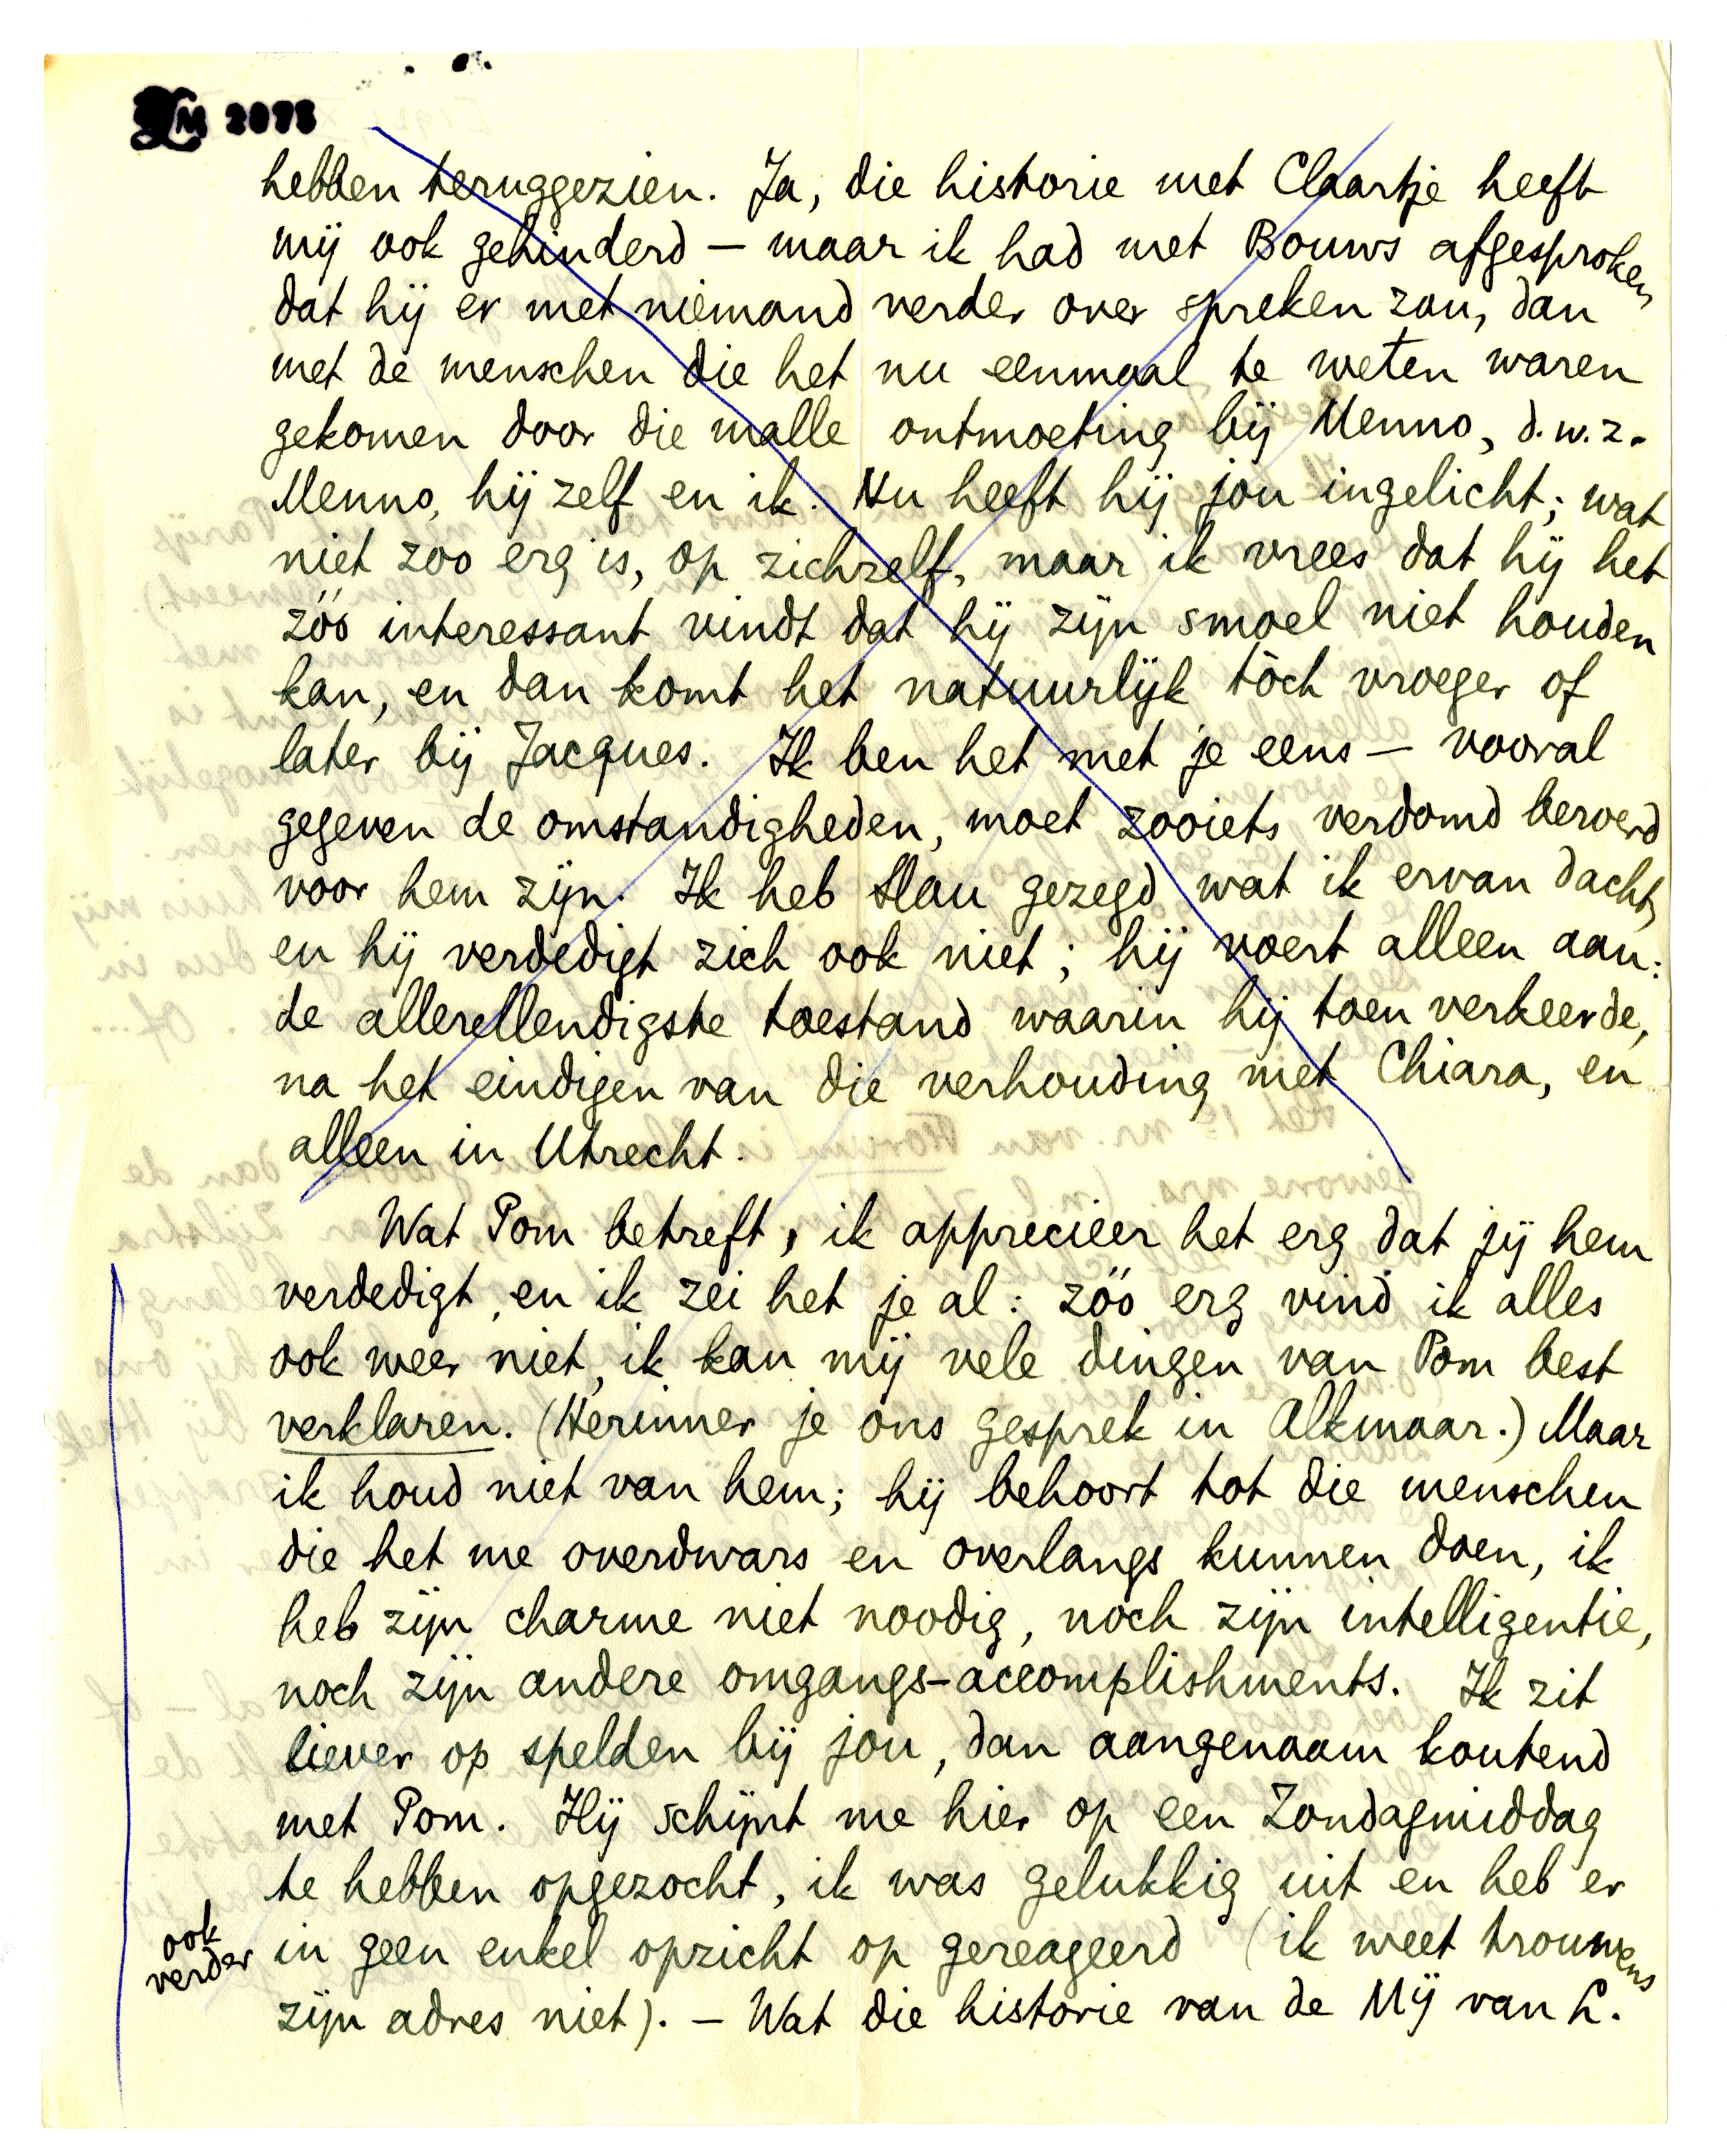 LM 2073
hebben teruggezien. Ja, die historie met Claartje heeft
mij ook gehinderd – maar ik had met Bouws afgesproken
dat hij er met niemand verder over spreken zou, dan
met de menschen die het nu eenmaal te weten waren
gekomen door die malle ontmoeting bij Menno, d.w.z.
Menno, hij zelf en ik. Nu heeft hij jou ingelicht; wat
niet zoo erg is, op zichzelf, maar ik vrees dat hij het
zóó interessant vindt dat hij zijn smoel niet houden
kan, en dan komt het natuurlijk tòch vroeger of
later bij Jacques. Ik ben het met je eens – vooral
gegeven de omstandigheden, moet zooiets verdomd beroerd
voor hem zijn. Ik heb Slau gezegd wat ik ervan dacht,
en hij verdedigt zich ook niet; hij voert alleen aan:
de allerellendigste toestand waarin hij toen verkeerde,
na het eindigen van die verhouding met Chiara, en
alleen in Utrecht.
Wat Pom betreft, ik apprecieer het erg dat jij hem
verdedigt, en ik zei het je al: zóó erg vind ik alles
ook weer niet, ik kan mij vele dingen van Pom best
verklaren. (Herinner je ons gesprek in Alkmaar.) Maar
ik houd niet van hem; hij behoort tot die menschen
die het me overdwars en overlangs kunnen doen, ik
heb zijn charme niet noodig, noch zijn intelligentie,
noch zijn andere omgangs-accomplishments. Ik zit
liever op spelden bij jou, dan aangenaam koutend
met Pom. Hij schijnt me hier op een Zondagmiddag
te hebben opgezocht, ik was gelukkig uit en heb er
ook
verder
in geen enkel opzicht op gereageerd (ik weet trouwens
zijn adres niet). – Wat die historie van de Mij van L.